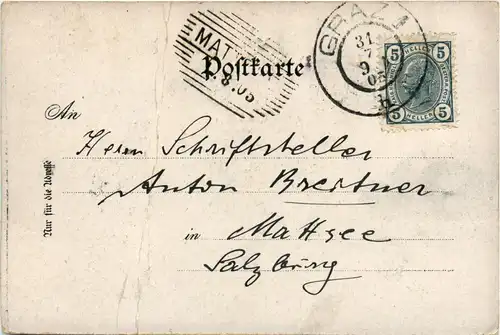 GRAZ 1
31
7
9
05
MAT
8.05
Postkarte
5 HELLER 5
5 HELLER 5
An
Herrn Schriftsteller
Anton Breitner
in Mattsee
Salzburg
Nur für die Adresse